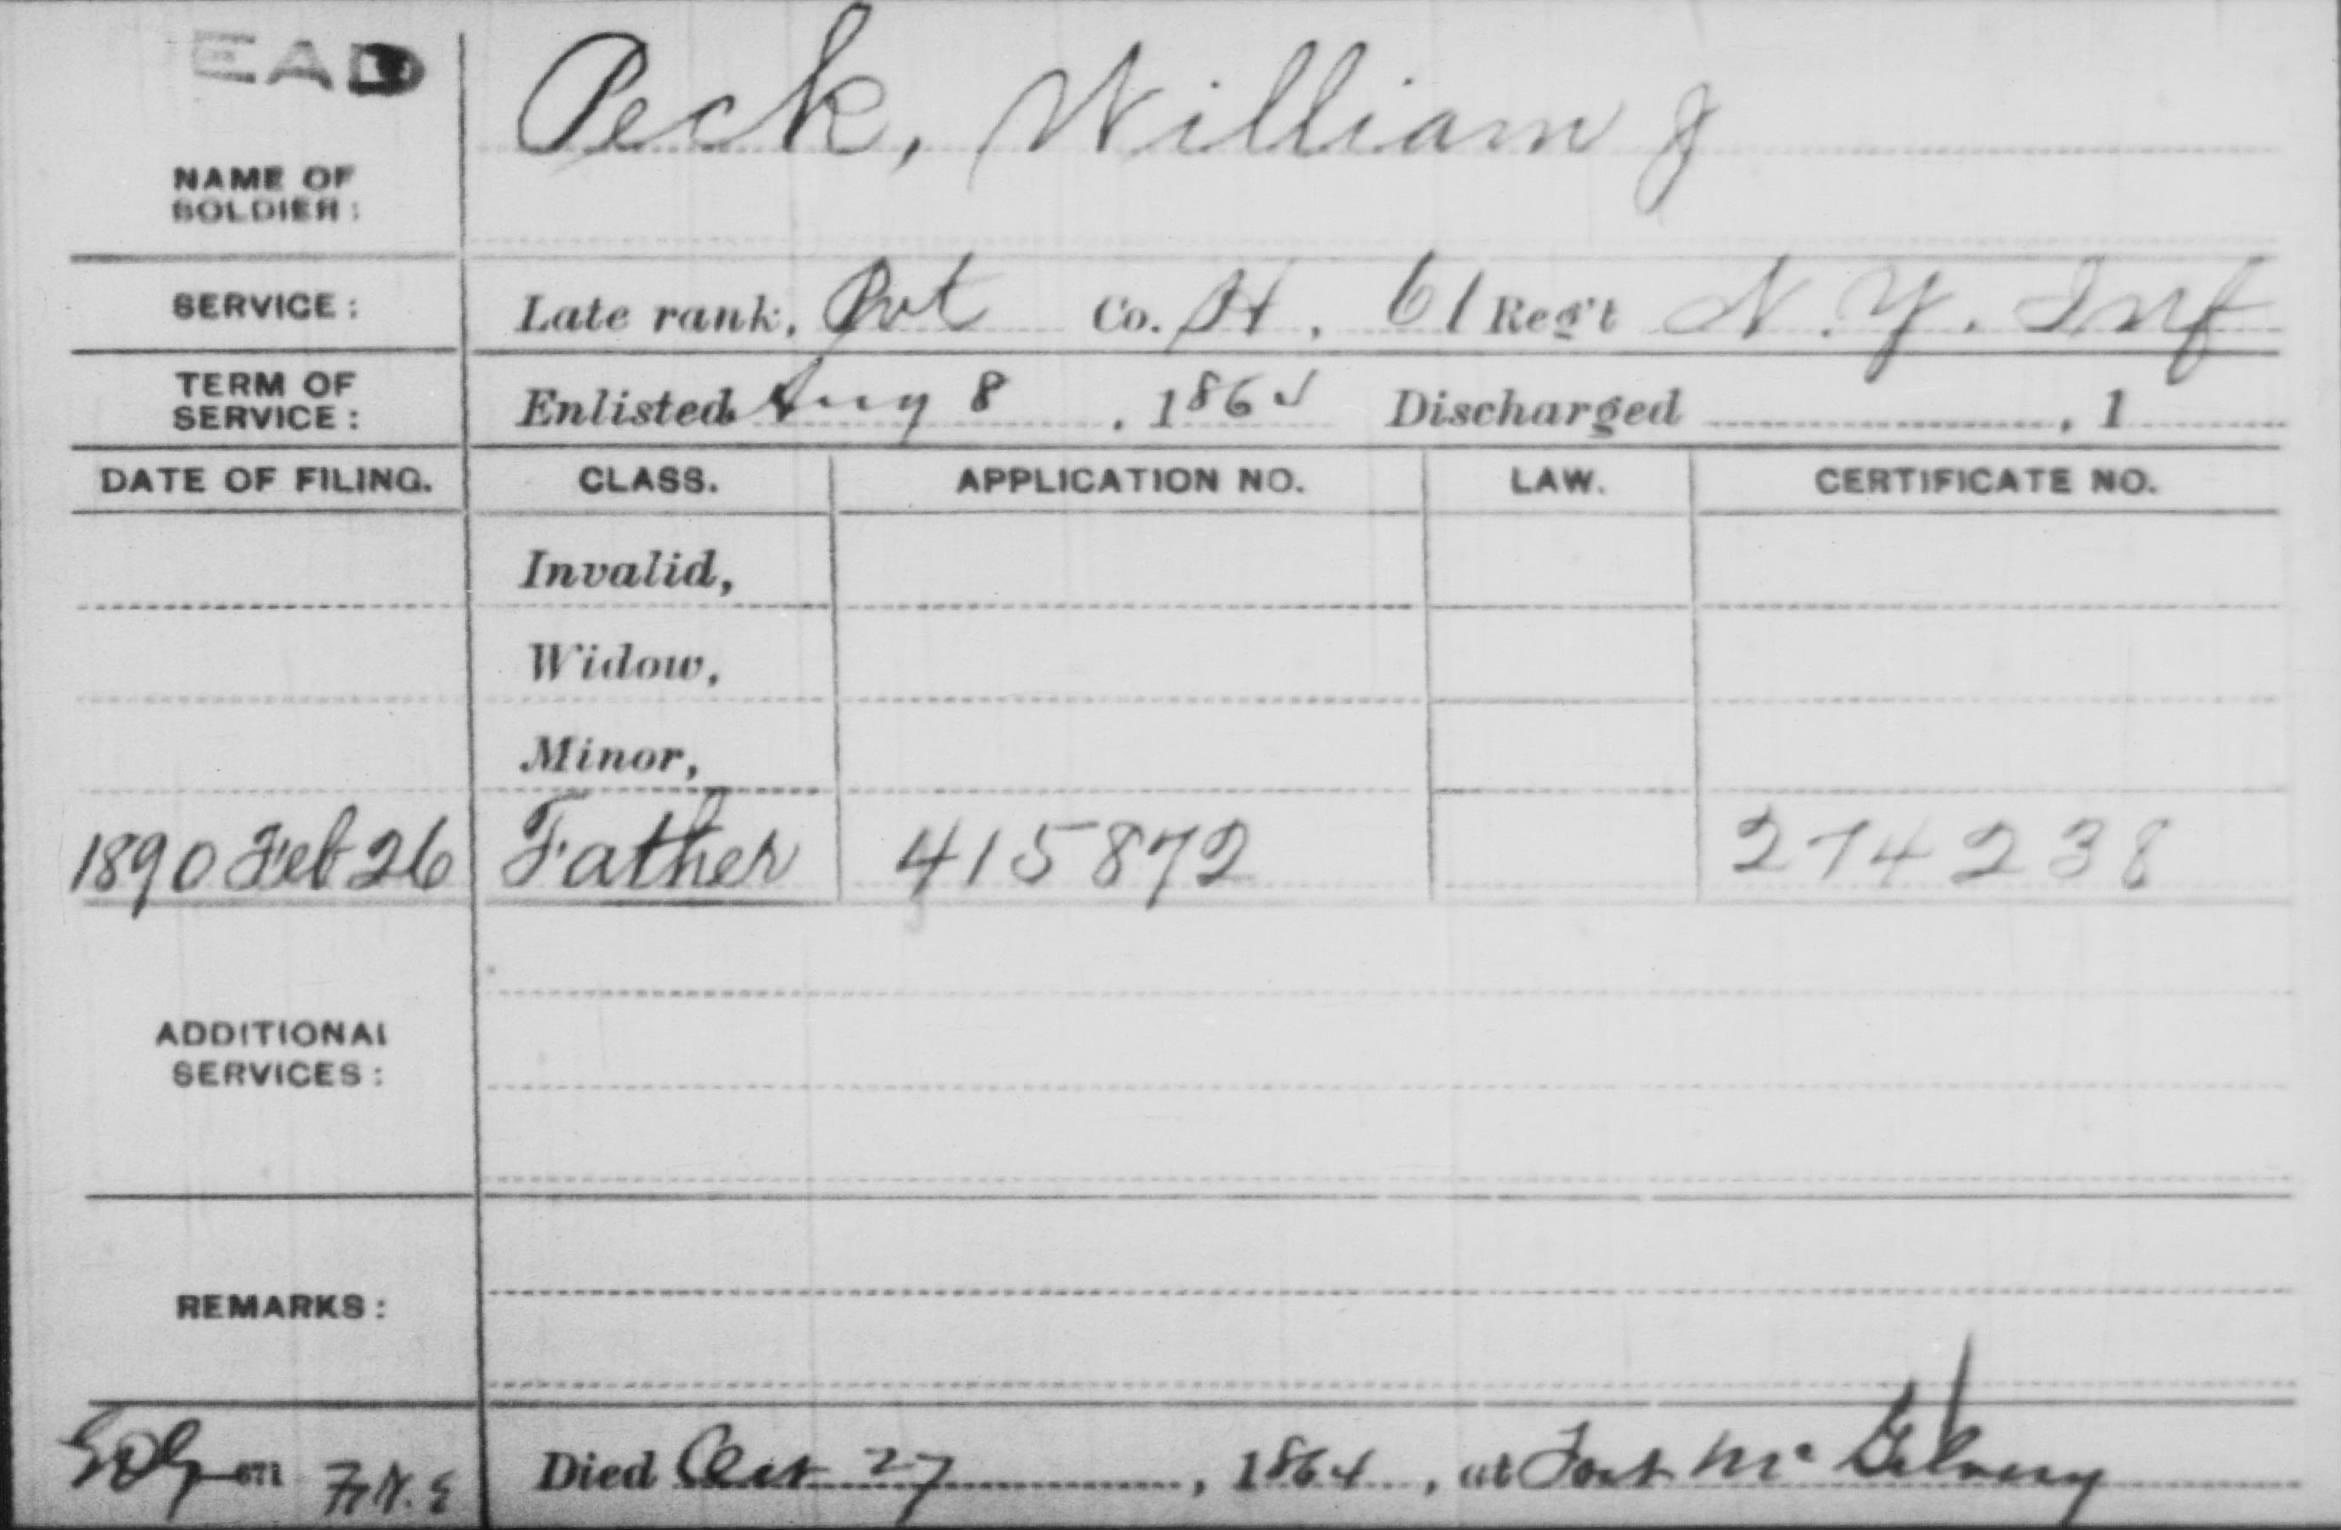 EAD
Peck, William J
NAME OF
SOLDIER:
SERVICE: Late rank, Pvt Co. H, 61 Reg't N.Y. Inf
TERM OF
SERVICE: Enlisted Aug 8, 1864 Discharged , 1
DATE OF FILING. CLASS. APPLICATION NO. LAW. CERTIFICATE NO.
Invalid,
Widow,
Minor,
1890 Feb 26 Father 415872 274238
ADDITIONAL
SERVICES:
REMARKS:
671 Died Oct 27, 1864, at Fort Mc Gilvery